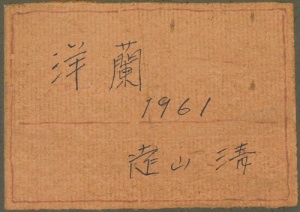 洋蘭
1961
遠山清